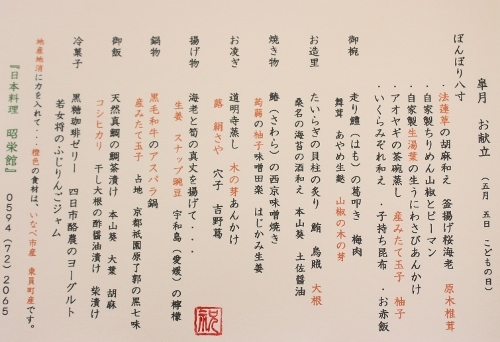 皐月　お献立　（五月　五日　こどもの日）
ぼんぼり八寸
・法蓮草の胡麻和え　釜揚げ桜海老　原木椎茸
・自家製ちりめん山椒とピーマン
・自家製生湯葉の生うにわさびあんかけ
・アオヤギの茶碗蒸し　産みたて玉子　柚子
・いくらみぞれ和え　・子持ち昆布　・お赤飯
御椀　走り鱧（はも）の葛叩き　梅肉
舞茸　あやめ生麩　山椒の木の芽
お造里　たいらぎの貝柱の炙り　鮪　烏賊　大根
桑名の海苔の酒和え　本山葵　土佐醤油
焼き物　鰆（さわら）の西京味噌焼き
蒟蒻の柚子味噌田楽　はじかみ生姜
お凌ぎ　道明寺蒸し　木の芽あんかけ
蕗　絹さや　穴子　吉野葛
揚げ物　海老と筍の真丈を揚げて・・・
生姜　スナップ豌豆　宇和島（愛媛）の檸檬
鍋物　黒毛和牛のアスパラ鍋
産みたて玉子　占地　京都祇園原了郭の黒七味
御飯　天然真鯛の鯛茶漬け　本山葵　大葉　胡麻
コシヒカリ　干し大根の酢醤油漬け　柴漬け
冷菓子　黒糖珈琲ゼリー　四日市酪農のヨーグルト
若女将のふじりんごジャム
地産地消に力を入れて・・橙色の食材は、いなべ市産　東員町産です。
『日本料理　昭栄館』　０５９４（７２）２０６５